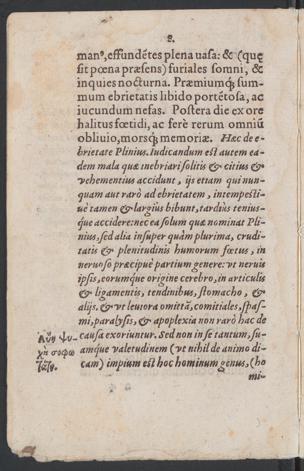 2.
manꝰ, effundẽtes plena vasa: & (quę
sit pœna præsens) furiales somni, &
inquies nocturna. Præmiumq́; sum-
mum ebrietatis libido portẽtosa, ac
iucundum nefas. Postera die ex ore
halitus fœtidi, ac ferè rerum omniũ
obliuio, morsq́; memoriæ. Hæc de e-
brietate Plinius. Iudicandum est autem ea-
dem mala quæ inebriari solitis & citius &
vehementius accidunt, ijs etiam qui nun-
quam aut rarò ad ebrietatem, intempesti-
uè tamen & largiùs bibunt, tardiùs tenius-
que accidere: nec ea solum quæ nominat Pli-
nius, sed alia insuper quàm plurima, crudi-
tatis & plenitudinis humorum fœtus, in
neruoso præcipuè partium genere: vt neruis
ipsis, eorumque origine cerebro, in articulis
& ligamentis, tendinibus, stomacho, &
alijs. & vt leuiora omittã, comitiales, spas-
mi, paralysis, & apoplexia non rarò hac de
causa exoriuntur. Sed non in se tantum, su-
amque valetudinem (vt nihil de animo di-
cam) impium est hoc hominum genus, (ho
mi-
ψυ-
χὴ σοφω